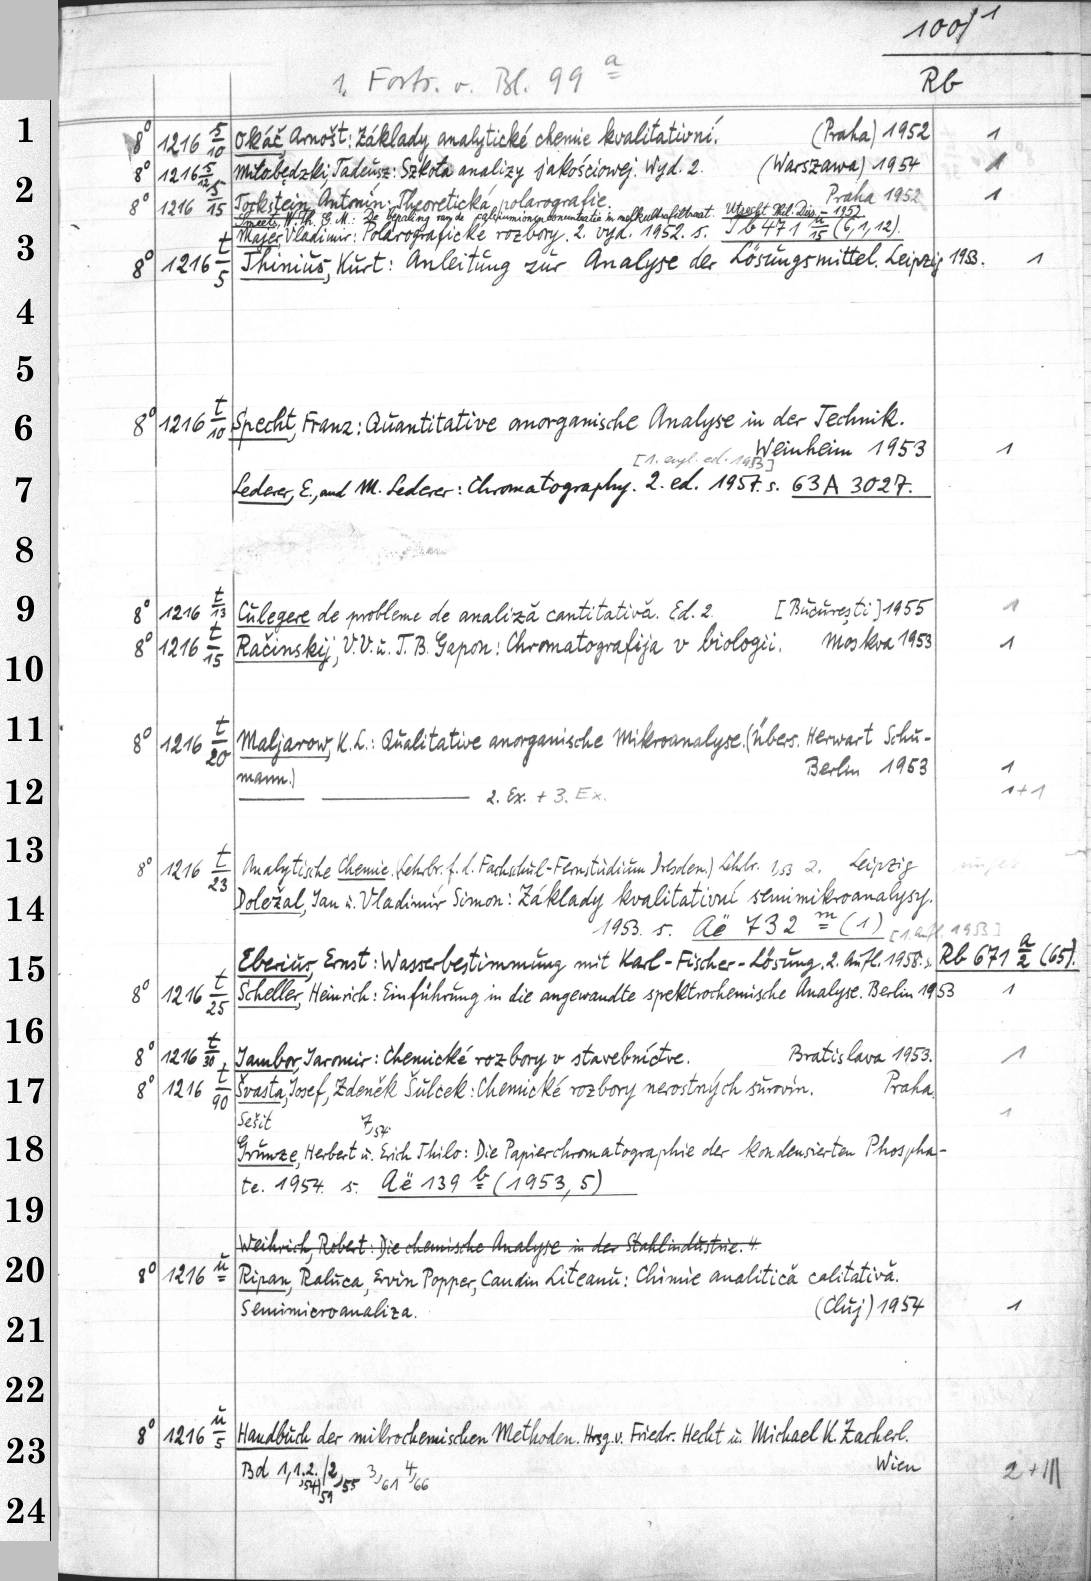 100/1
1. Forts. v. Bl. 99 a
Rb
1
8° 1216 s/10 Okáč, Arnošt: Základy analytické chemie kvalitativní. (Praha) 1952 1
8° 1216 s/12 Miłobędzki, Tadeusz: Szkoła analizy jakościowej. Wyd. 2. (Warszawa) 1954 1
2
8° 1216 s/15 Antonín: Theoretická polarografie. Praha 1952 1
Smeets, W. Th. G. M.: De bepaling van de calciumionenconcentratie in melkultrafiltraat. Utrecht 1952
Majer, Vladimír: Polarografické rozbory. 2. vyd. 1952. s. Ib 471 u/15 (6,1,12).
3
8° 1216 t/5 Thinius, Kurt: Anleitung zur Analyse der Lösungsmittel. Leipzig 1953. 1
4
5
6
8° 1216 t/10 Specht, Franz: Quantitative anorganische Analyse in der Technik.
Weinheim 1953 1
[1. engl. ed. 1953]
7
Lederer, E., and M. Lederer: Chromatography. 2. ed. 1957. s. 63 A 3027.
8
9
8° 1216 t/13 Culegere de probleme de analiză cantitativă. Ed. 2. [Bucureşti] 1955 1
8° 1216 t/15 Račinskij, V. V. u. T. B. Gapon: Chromatografija v biologii. Moskva 1953 1
10
11
8° 1216 t/20 Maljarow, K. L.: Qualitative anorganische Mikroanalyse. (Übers. Herwart Schu-
mann.) Berlin 1953 1
12
2. Ex. + 3. Ex. 1+1
13
8° 1216 t/23 Analytische Chemie. (Lehrbr. f. d. Fachschul-Fernstudium Dresden.) Lehrbr. 1,53 2. Leipzig
14
Doležal, Jan u. Vladimír Simon: Základy kvalitativní semimikroanalysy.
1953. s. Aë 732 m (1)
[1. Aufl. 1953]
15
Eberius, Ernst: Wasserbestimmung mit Karl-Fischer-Lösung. 2. Aufl. 1958. s. Rb 671 a/2 (65).
8° 1216 t/25 Scheller, Heinrich: Einführung in die angewandte spektrochemische Analyse. Berlin 1953 1
16
8° 1216 t/30 Jambor, Jaromír: Chemické rozbory v stavebníctve. Bratislava 1953. 1
17
8° 1216 t/90 Švasta, Josef, Zdeněk Šulcek: Chemické rozbory nerostných surovin. Praha.
Sešit 7,54 1
18
Grunze, Herbert u. Erich Thilo: Die Papierchromatographie der kondensierten Phospha-
te. 1954. s. Aë 139 b (1953, 5)
19
Weihrich, Robert: Die chemische Analyse in der Stahlindustrie. 4.
20
8° 1216 u Ripan, Raluca, Ervin Popper, Candin Liteanu: Chimie analitică calitativă.
Semimicroanaliza. (Cluj) 1954 1
21
22
23
8° 1216 u/5 Handbuch der mikrochemischen Methoden. Hrsg. v. Friedr. Hecht u. Michael K. Zacherl.
Bd 1,1.2. ,54)59 /2,55 3,61 4,66 Wien 2+III
24